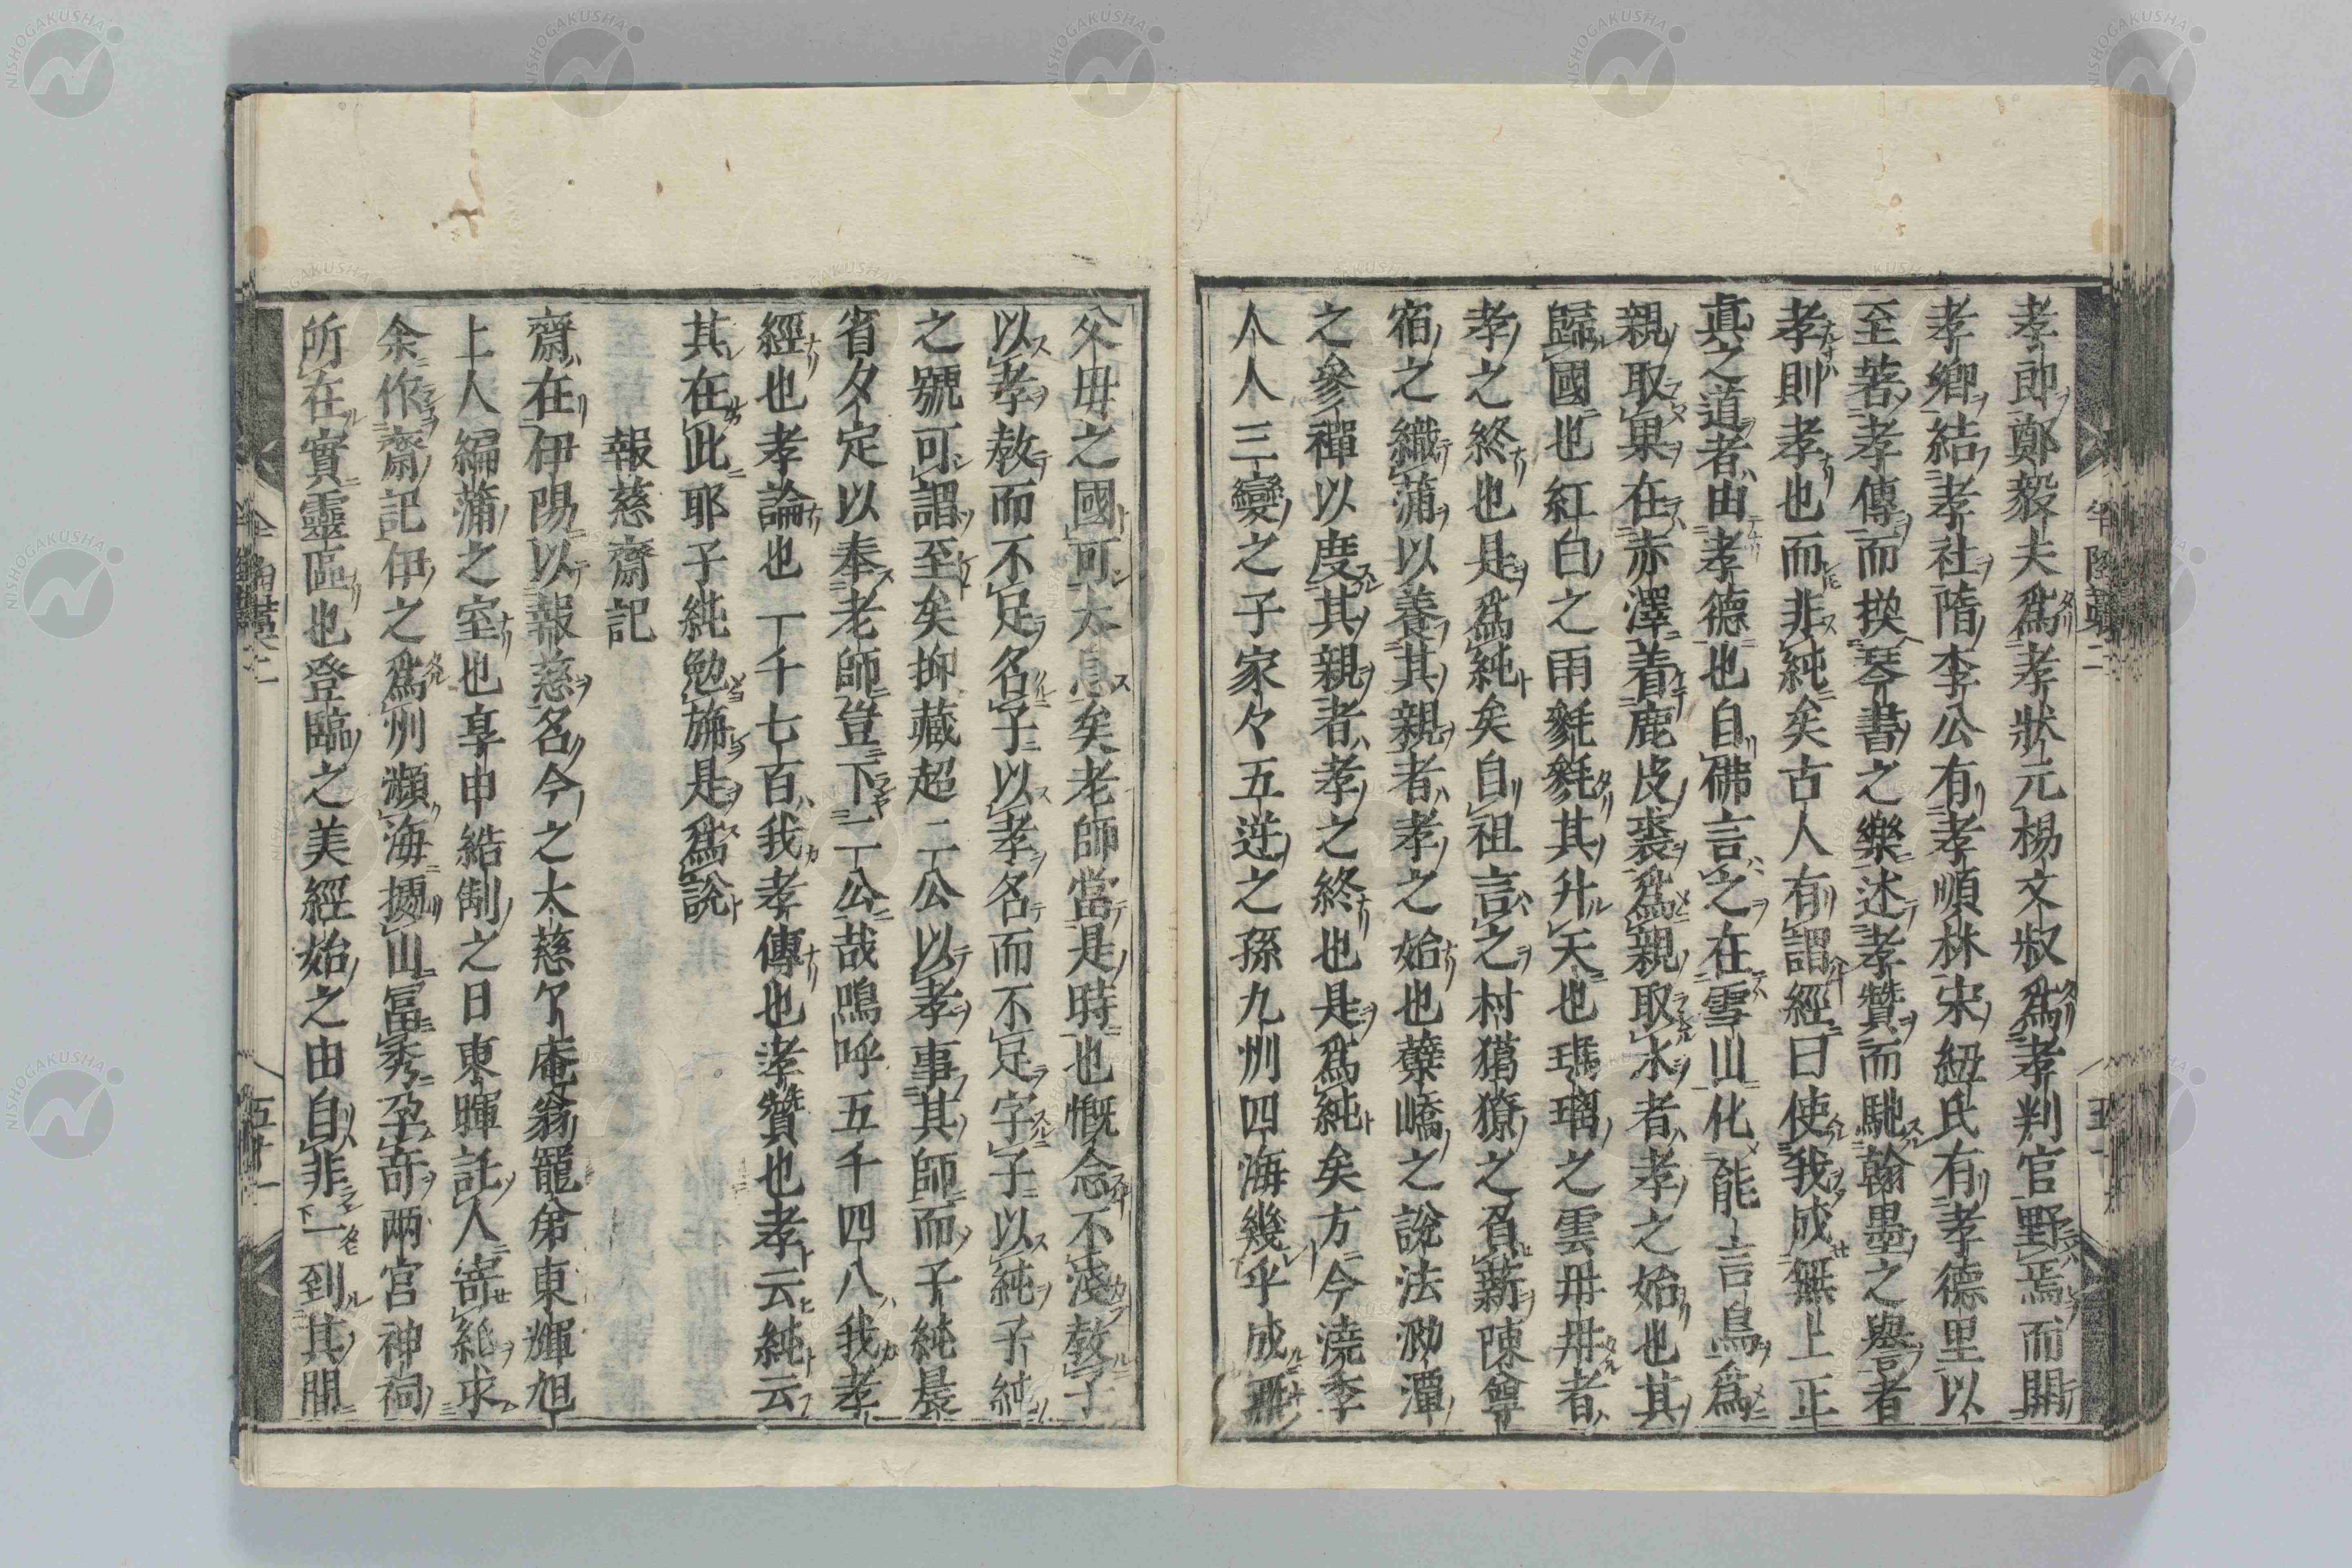 孝郎鄭毅夫爲孝狀元楊文叔爲孝判官野焉而開
孝鄉結孝社隋李公有孝順林宋紐氏有孝德里以
至著孝傳而換琴書之樂述孝贊而馳翰墨之譽者
孝則孝也而非純矣古人有謂經曰使我成無上正
眞之道者由孝德也自佛言之在雪山化能言鳥爲
親取菓在赤澤着鹿皮裘爲親取水者孝之始也其
歸國也紅白之雨毿毿其升天也瑪璃之雲冉冉者
孝之終也是爲純矣自祖言之村獦獠之負薪陳尊
宿之織蒲以養其親者孝之始也蘗嶠之說法泐潭
之參禪以度其親者孝之終也是爲純矣方今澆季
人人三變之子家々五逆之孫九州四海幾乎成無
父母之國可大息矣老師當是時也慨念不淺敎子
以孝敎而不足名子以孝名而不足字子以純子純
之號可謂至矣抑藏超二公以孝事其師而子純晨
省夕定以奉老師豈下二公哉嗚呼五千四八我孝
經也孝論也一千七百我孝傳也孝贊也孝云純云
其在此耶子純勉旃是爲說
報慈齋記
齋在伊陽以報慈名今之大慈了庵翁寵弟東輝旭
上人編蒲之室也享申結制之日東暉託人寄紙求
余作齋記伊之爲州瀕海擾山冨秀孕奇兩宮神祠
所在實靈區也登臨之美經始之由自非一到其間